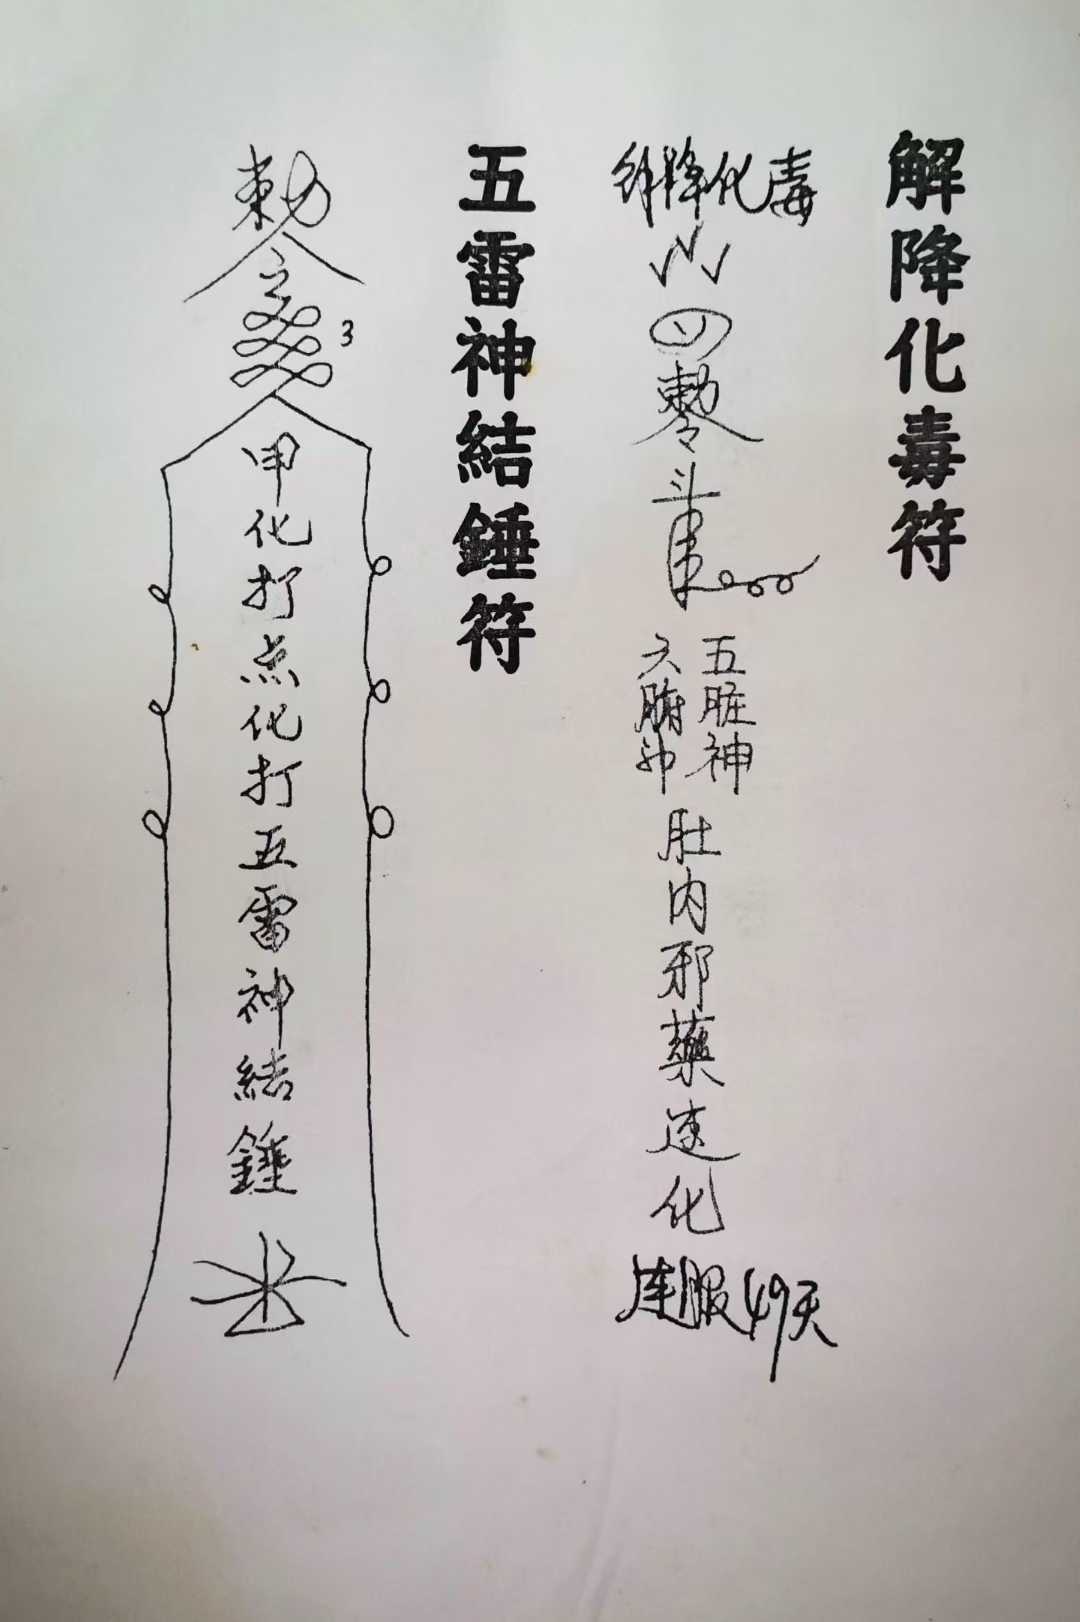 解降化毒符
解降化毒
勅令
斗
五脏神
六腑神
肚内邪藥速化
连服49天
五雷神結錘符
勅令
3
甲化打点化打五雷神結錘